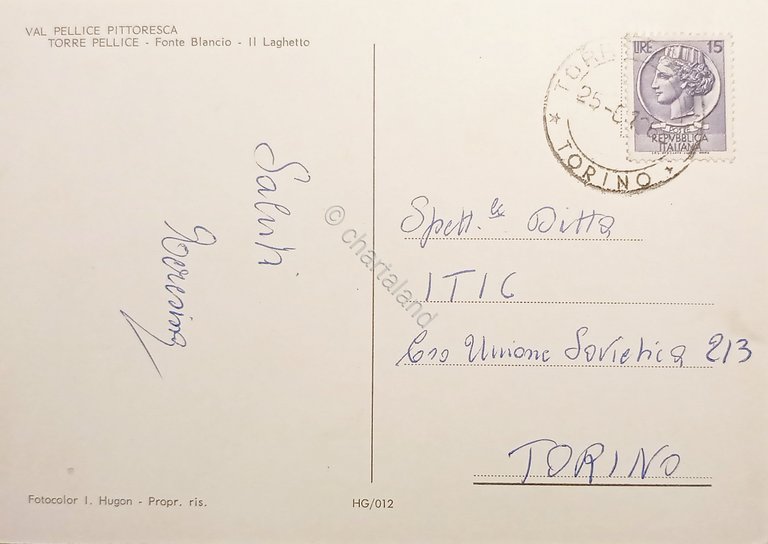 VAL PELLICE PITTORESCA
TORRE PELLICE - Fonte Blancio - Il Laghetto
LIRE 15
REPVBBLICA
ITALIANA
TORINO
25-
Saluti
© chartaland
Spett.le Ditta
ITIC
C.so Unione Sovietica 213
TORINO
Fotocolor I. Hugon - Propr. ris.
HG/012